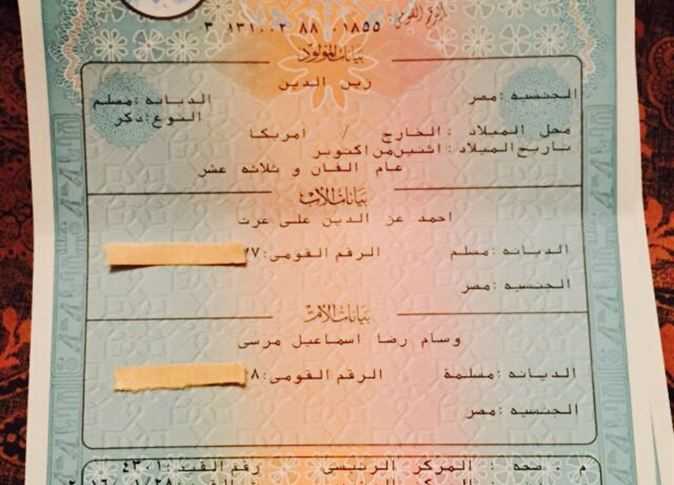 الرقم القومى:
٣ ١٣١٠٠٢ ٨٨ ٠١٨٥٥
بيانات المولود
زين الدين
الجنسيه :مصر الديانه :مسلم
النوع :ذكر
محل الميلاد : الخارج / امريكا
تاريخ الميلاد : اثنين من اكتوبر
عام الفان و ثلاثه عشر
بيانات الأب
احمد عز الدين على عزت
الديانه :مسلم الرقم القومى:٧٧
الجنسيه :مصر
بيانات الأم
وسام رضا اسماعيل مرسى
الديانه :مسلمة الرقم القومى:٨
الجنسيه :مصر
م . صحه : المركز الرئيسى رقم القيد :٤٣٠١